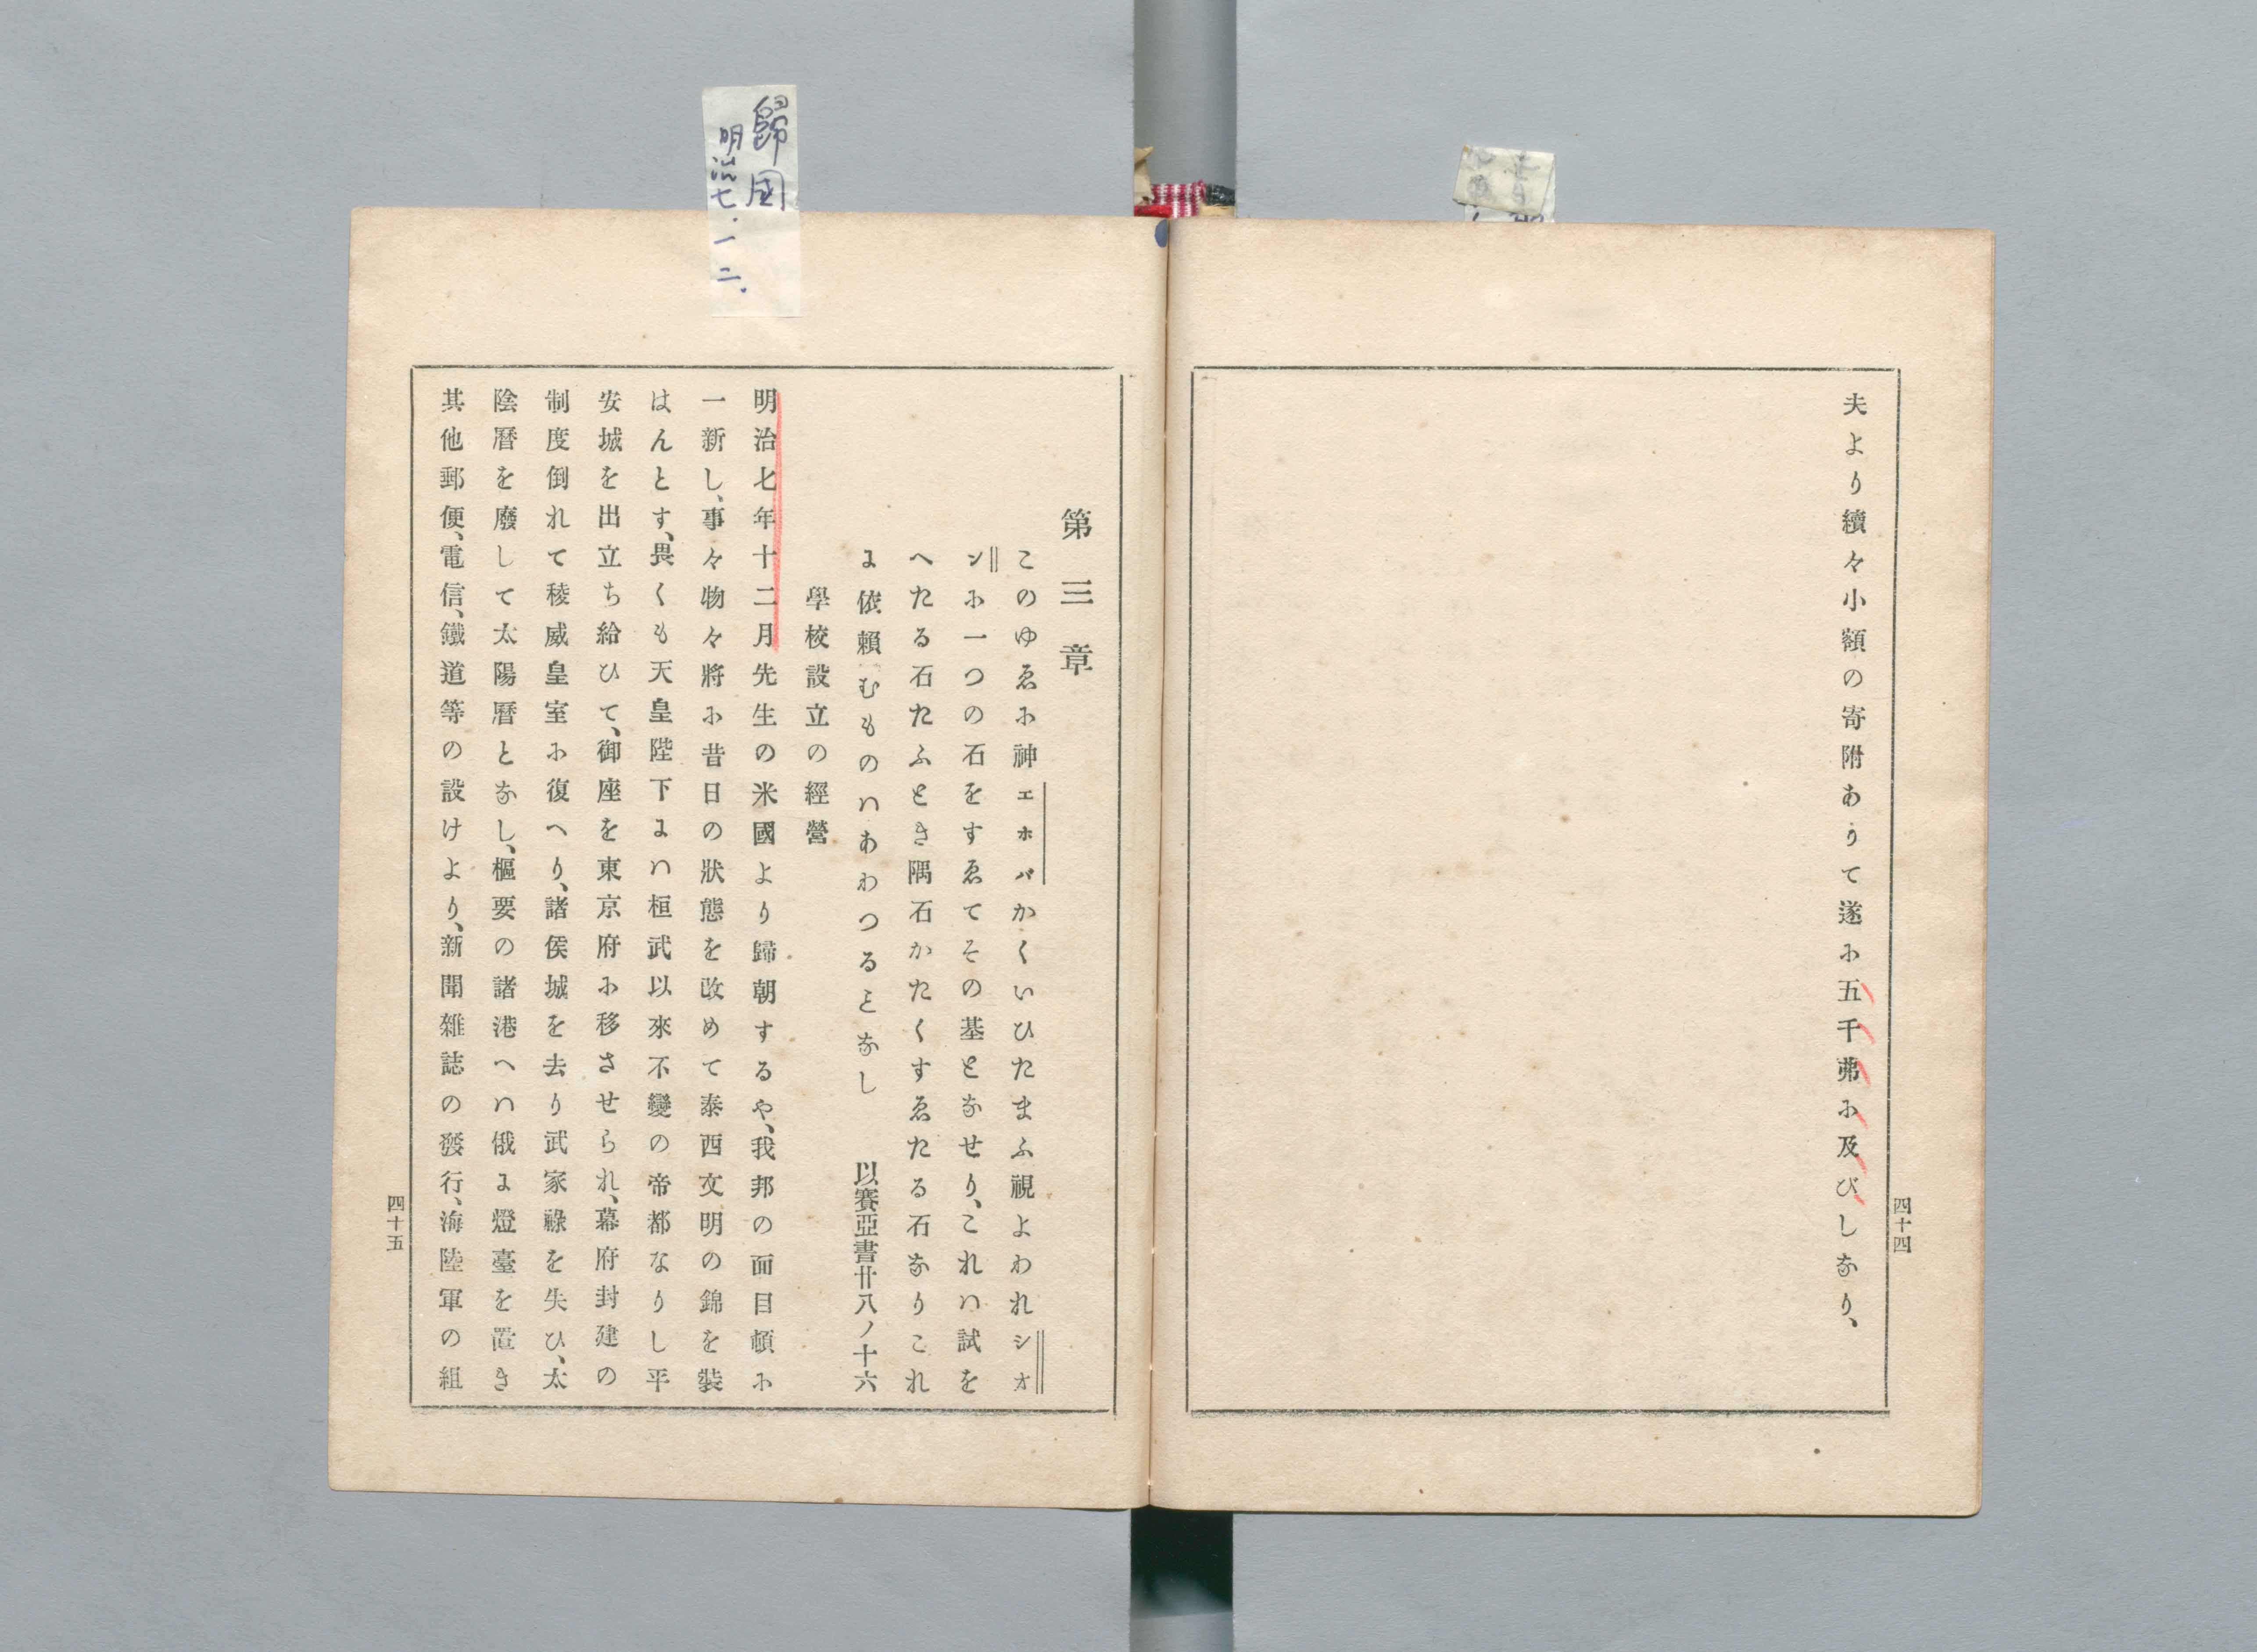 夫より續々小額の寄附ありて遂に五千弗に及びしなり、
四十四
歸国
明治七.一二.
第三章
このゆゑに神エホバかくいひたまふ視よわれシオ
ンに一つの石をすゑてその基となせり、これハ試を
へたる石たふとき隅石かたくすゑたる石なりこれ
に依賴むものハあわつることなし 以賽亞書廿八ノ十六
學校設立の經營
明治七年十二月先生の米國より歸朝するや、我邦の面目頓に
一新し、事々物々將に昔日の狀態を改めて泰西文明の錦を裝
はんとす、畏くも天皇陛下にハ桓武以來不變の帝都なりし平
安城を出立ち給ひて、御座を東京府に移させられ、幕府封建の
制度倒れて稜威皇室に復へり、諸侯城を去り武家祿を失ひ、太
陰曆を廢して太陽曆となし、樞要の諸港へハ俄に燈臺を置き
其他郵便、電信、鐵道等の設けより、新聞雜誌の發行、海陸軍の組
四十五